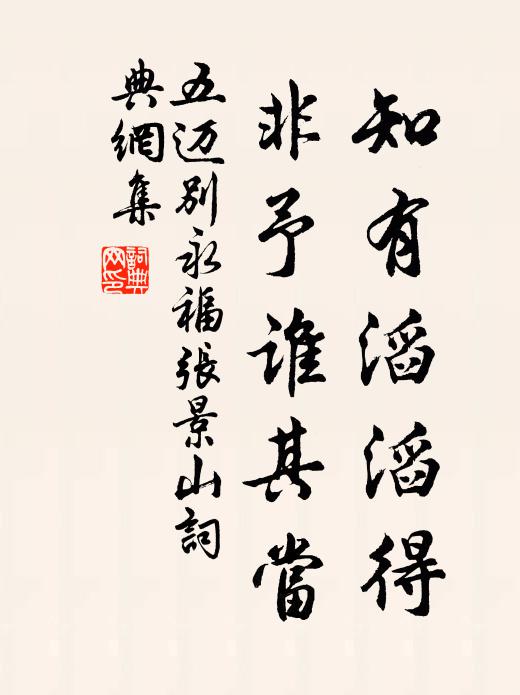 知有滔滔得
非予谁其當
五迈别永福張景山詞
典網集
詞典网印